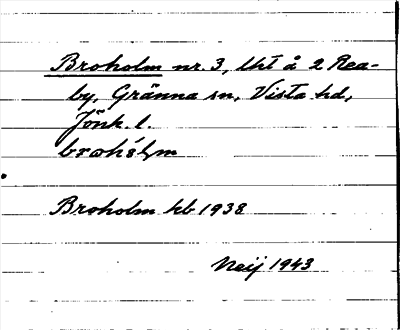 Broholm nr. 3, lht å 2 Rea-
by, Gränna sn, Vista hd,
Jönk. l.
broħól,m
Broholm kb 1938
Neij 1943